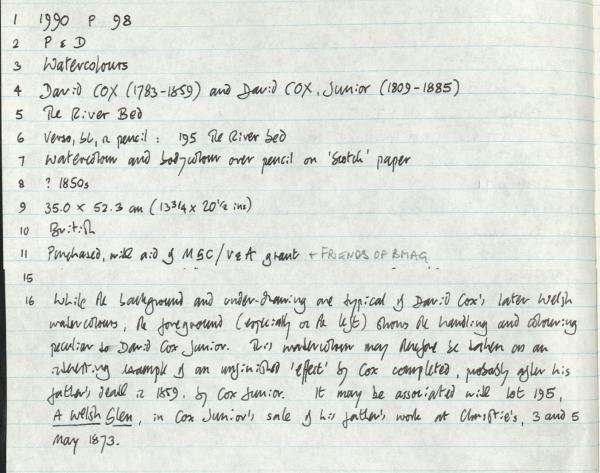 1 1990 P 98
2 P & D
3 Watercolours
4 David COX (1783-1859) and David COX, Junior (1809-1885)
5 The River Bed
6 Verso, bl, in pencil : 195 The River bed
7 Watercolour and bodycolour over pencil on 'Scotch' paper
8 ? 1850s
9 35.0 × 52.3 cm (13 3/4 × 20 1/2 ins)
10 British
11 Purchased, with aid of MGC/V&A grant + FRIENDS OF BMAG
15
16 While the background and under-drawing are typical of David Cox's later Welsh
watercolours, the foreground (especially on the left) shows the handling and colouring
peculiar to David Cox Junior. This watercolour may therefore be taken as an
interesting example of an unfinished 'effect' by Cox completed, probably after his
father's death in 1859, by Cox Junior. It may be associated with lot 195,
A Welsh Glen, in Cox Junior's sale of his father's work at Christie's, 3 and 5
May 1873.